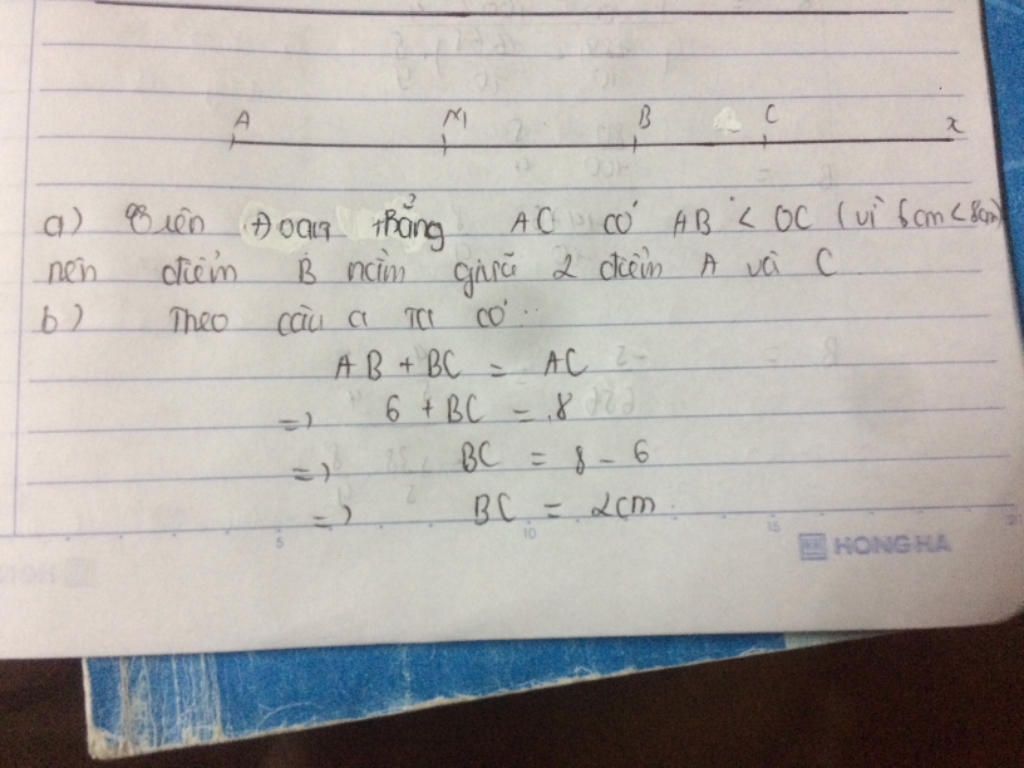 A M B C x
a) Trên Đoạn thẳng AC có AB < OC (vì 6cm < 8cm)
nên điểm B nằm giữa 2 điểm A và C
b) Theo câu a ta có:
AB + BC = AC
=> 6 + BC = 8
=> BC = 8 - 6
=> BC = 2cm
5 10 15
HONG HA